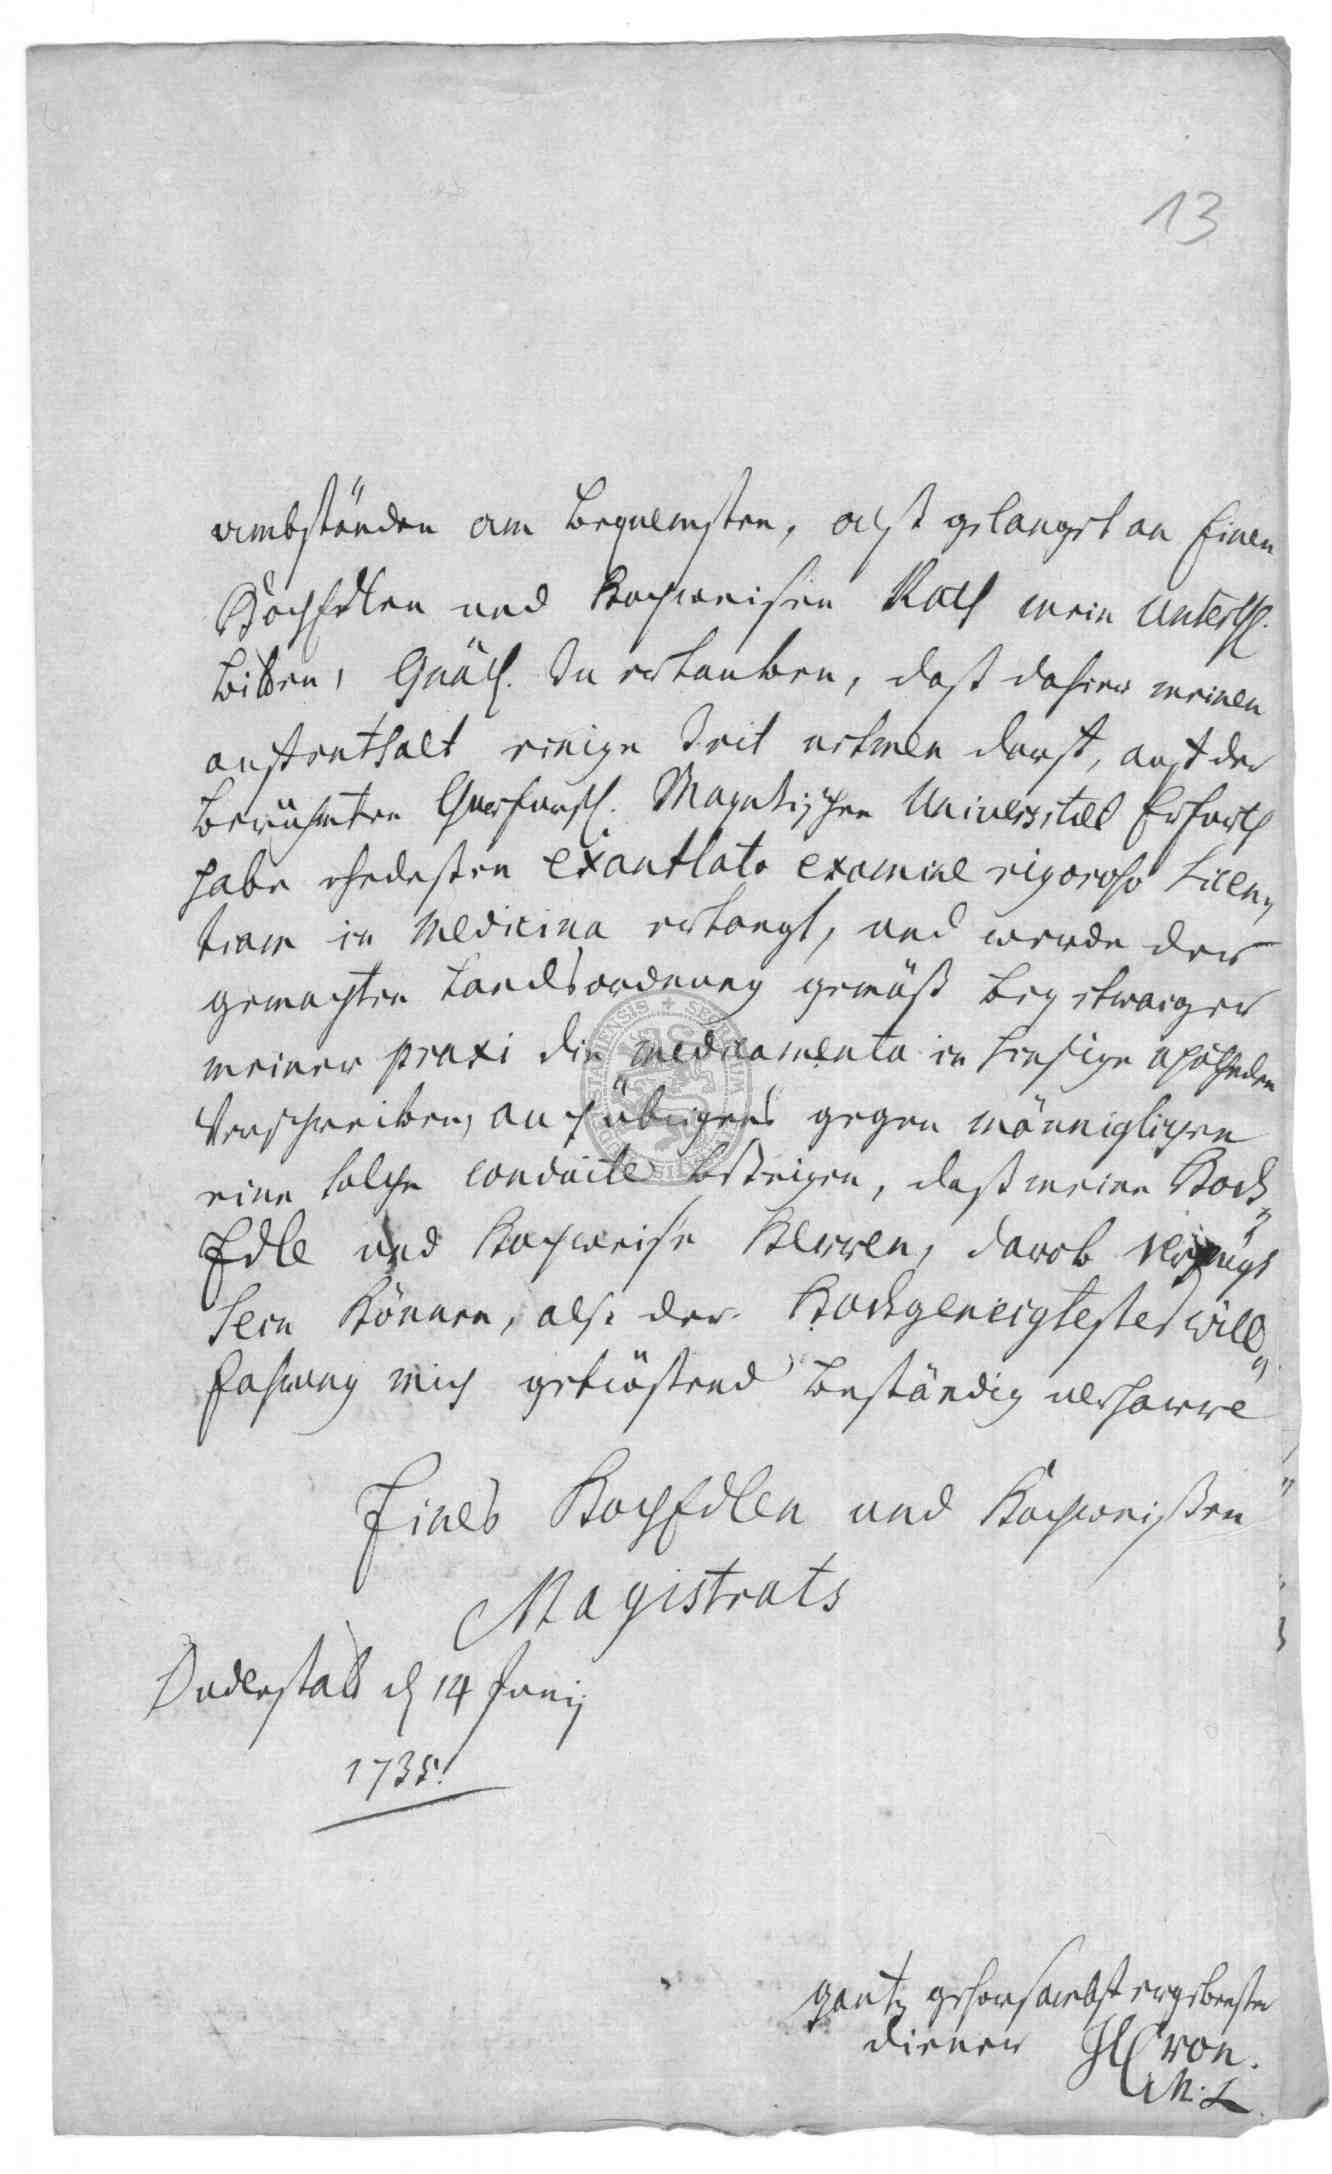 13
umbständen am bequemsten, alß gelanget an Einen
HochEdlen und Hochweisen Rath mein Unterth.
bitten, Gnäd. zu erlauben, daß dahier meinen
auffenthalt einige Zeit nehmen darff, auff der
berühmten Churfürstl. Mayntzischen Universitæt Erfurth
habe ehedessen exantlato examine rigoroso Licen„
tiam in Medicina erlangt, und werde der
gemachten Landsordnung gemäß bey etwaiger
meiner praxi die medicamenta in hiesige apotheken
verschreiben, auch übrigens gegen männiglichen
eine solche conduite bezeigen, daß meine Hoch„
Edle und Hochweise Herren, darob vergnügt
sein können, alß der Hochgeneigtester will„
fahrung mich getröstend beständig verharre
Eines HochEdlen und Hochweißen
Magistrats
Duderstatt d 14 Junij
1735.
gantz gehorsambst ergebenster
diener Cron.
M. L.